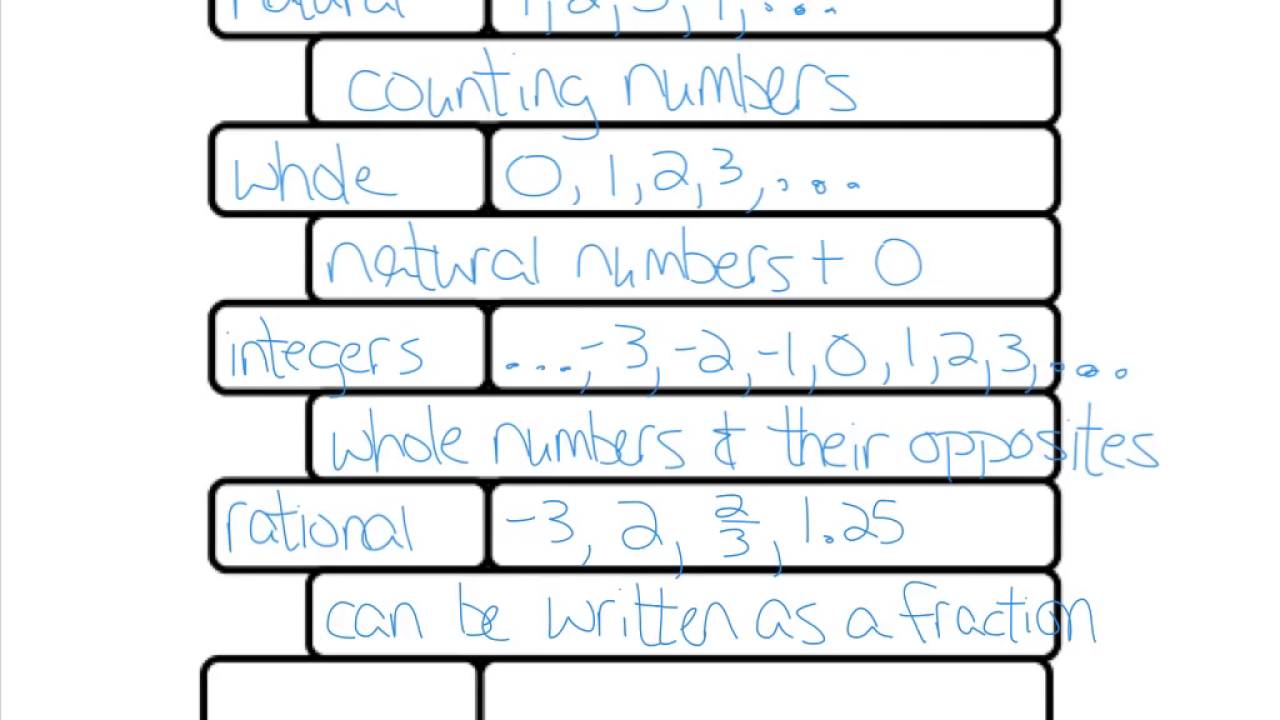 natural 1, 2, 3, 4, ...
counting numbers
whole 0, 1, 2, 3, ...
natural numbers + 0
integers ..., -3, -2, -1, 0, 1, 2, 3, ...
whole numbers & their opposites
rational -3, 2, 2/3, 1.25
can be written as a fraction